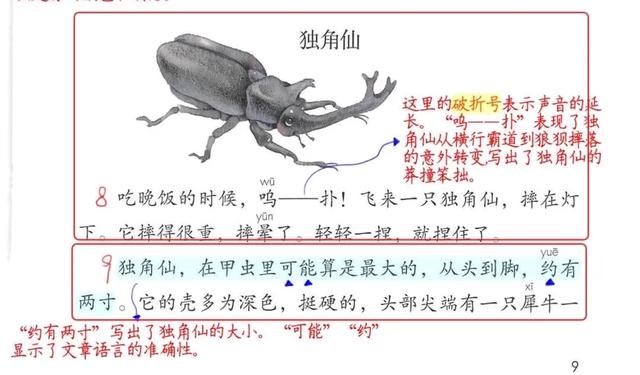 独角仙
这里的破折号表示声音的延
长。“呜——扑”表现了独
角仙从横行霸道到狼狈摔落
的意外转变,写出了独角仙的
莽撞笨拙。
wū
8 吃晚饭的时候,呜——扑!飞来一只独角仙,摔在灯
yūn
下。它摔得很重,摔晕了。轻轻一捏,就捏住了。
yuē
9 独角仙,在甲虫里可能算是最大的,从头到脚,约有
xī
两寸。它的壳多为深色,挺硬的,头部尖端有一只犀牛一
“约有两寸”写出了独角仙的大小。“可能”“约”
显示了文章语言的准确性。
9